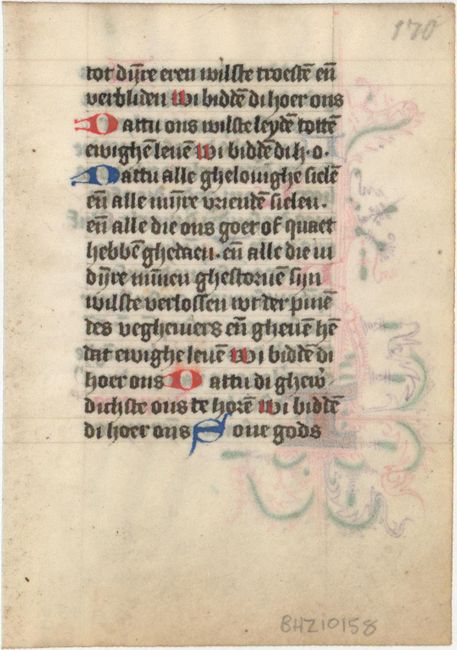 170
tot dijre eren wilste troestē eñ
verbliden wi biddē di hoer ons
Dattu ons wilste leydē tottē
ewighē levē wi biddē di h.o.
Dattu alle ghelovighe sielē
eñ alle mijre vriendē sielen.
eñ alle die ons goet of quaet
hebbē ghedaen. eñ alle die in
dijre mīnen ghestorvē sijn
wilste verlossen wt der pinē
des veghevuers eñ ghevē hē
dat ewighe levē wi biddē di
hoer ons Dattu di ghew
dichste ons te horē wi biddē
di hoer ons Sone gods
BHZ10158